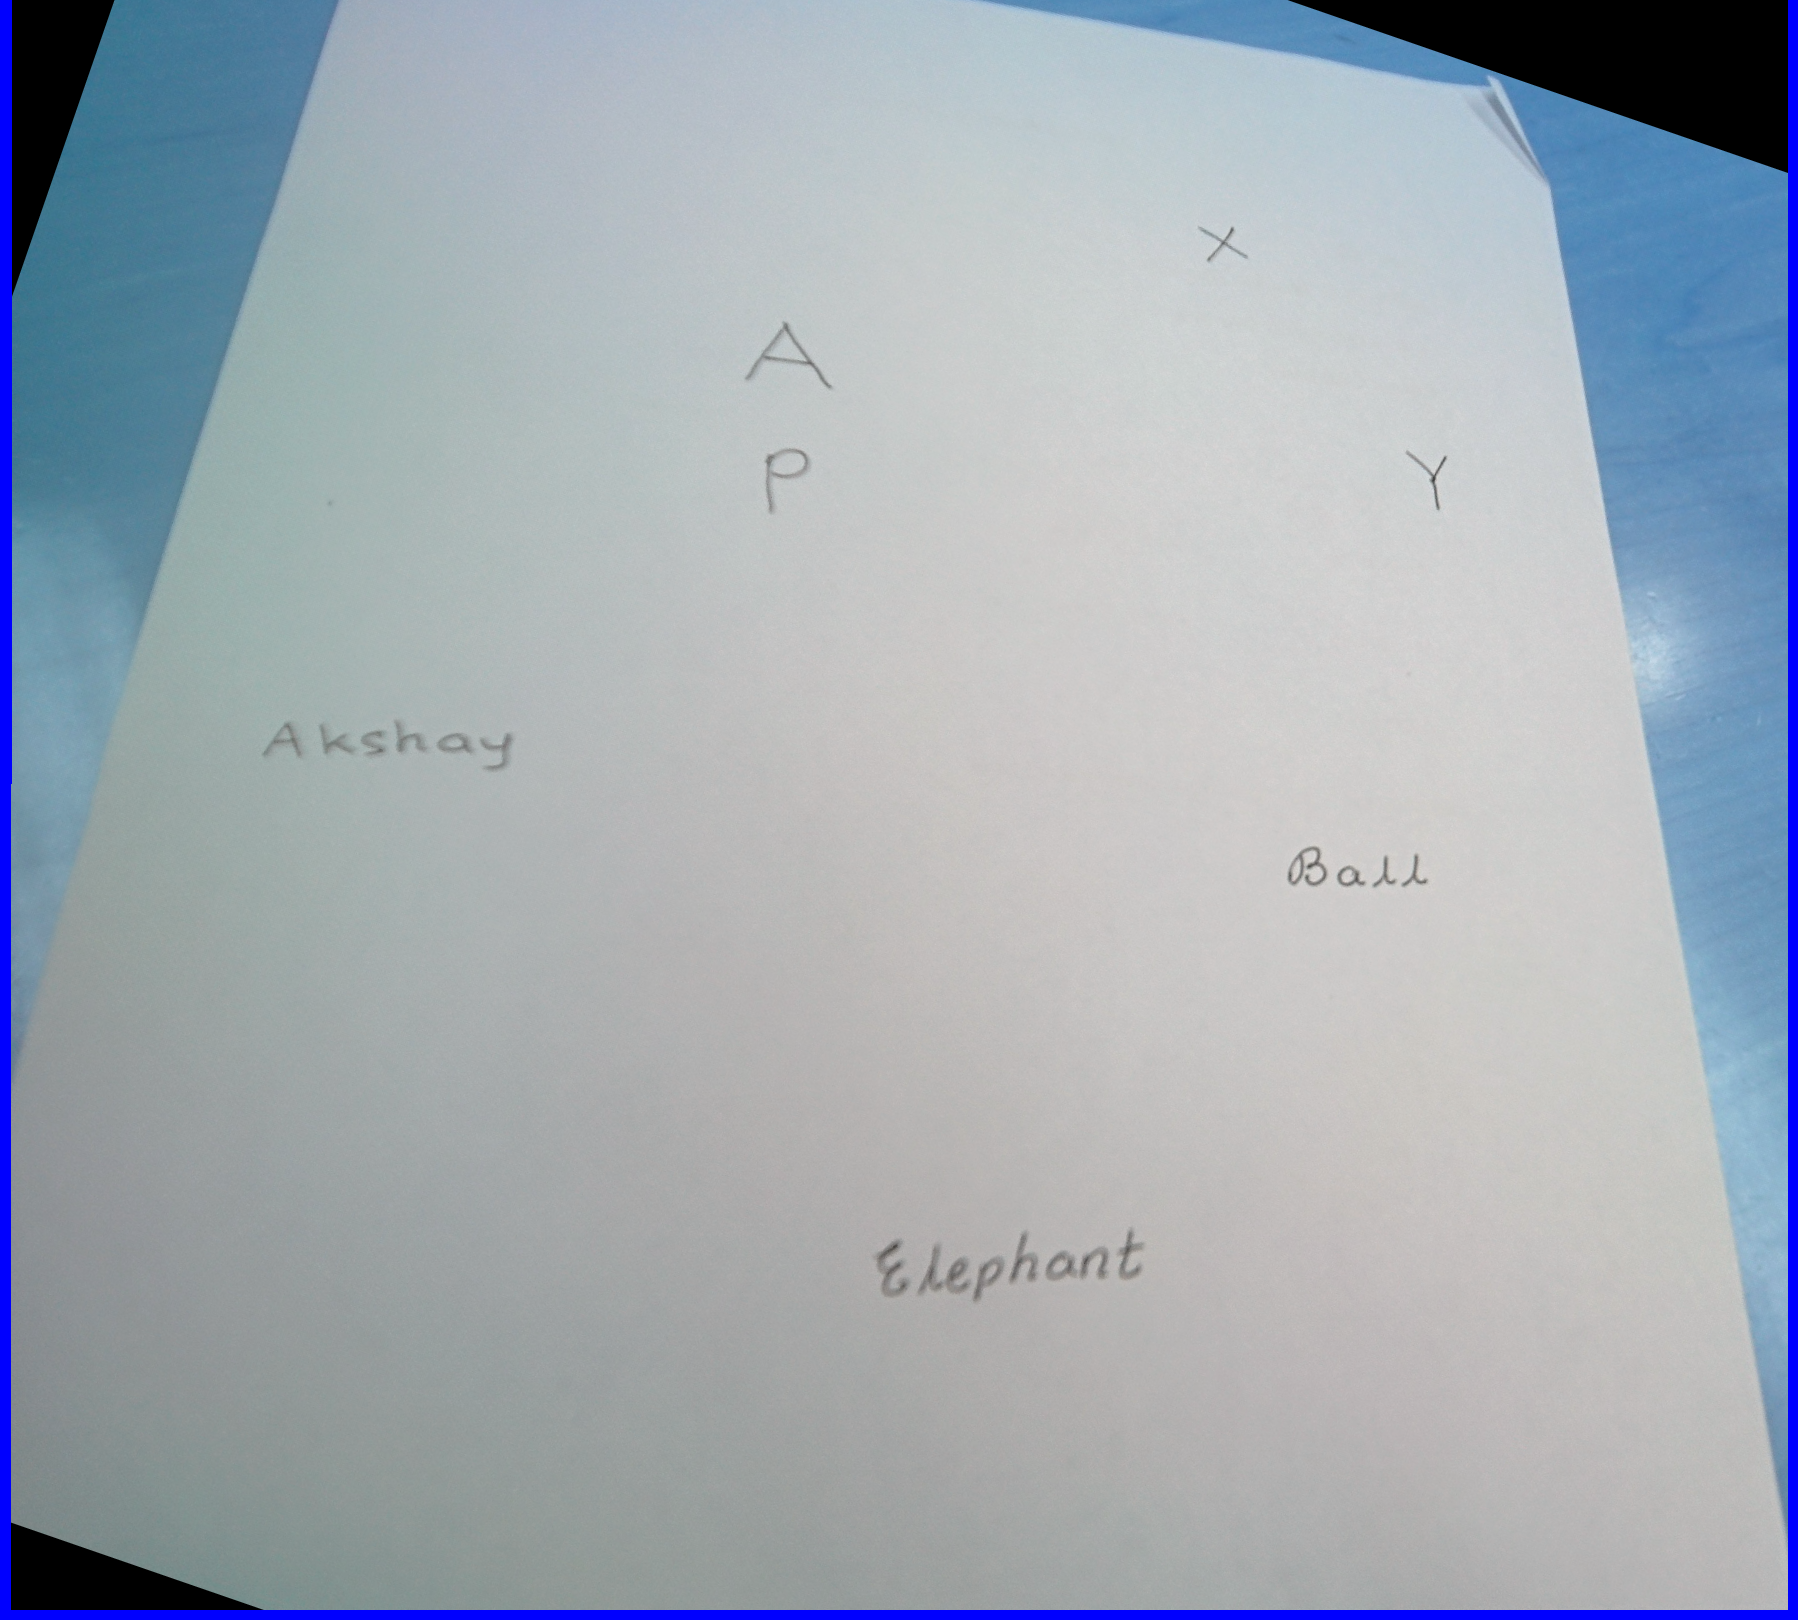 X
A
P
Y
Akshay
Ball
Elephant